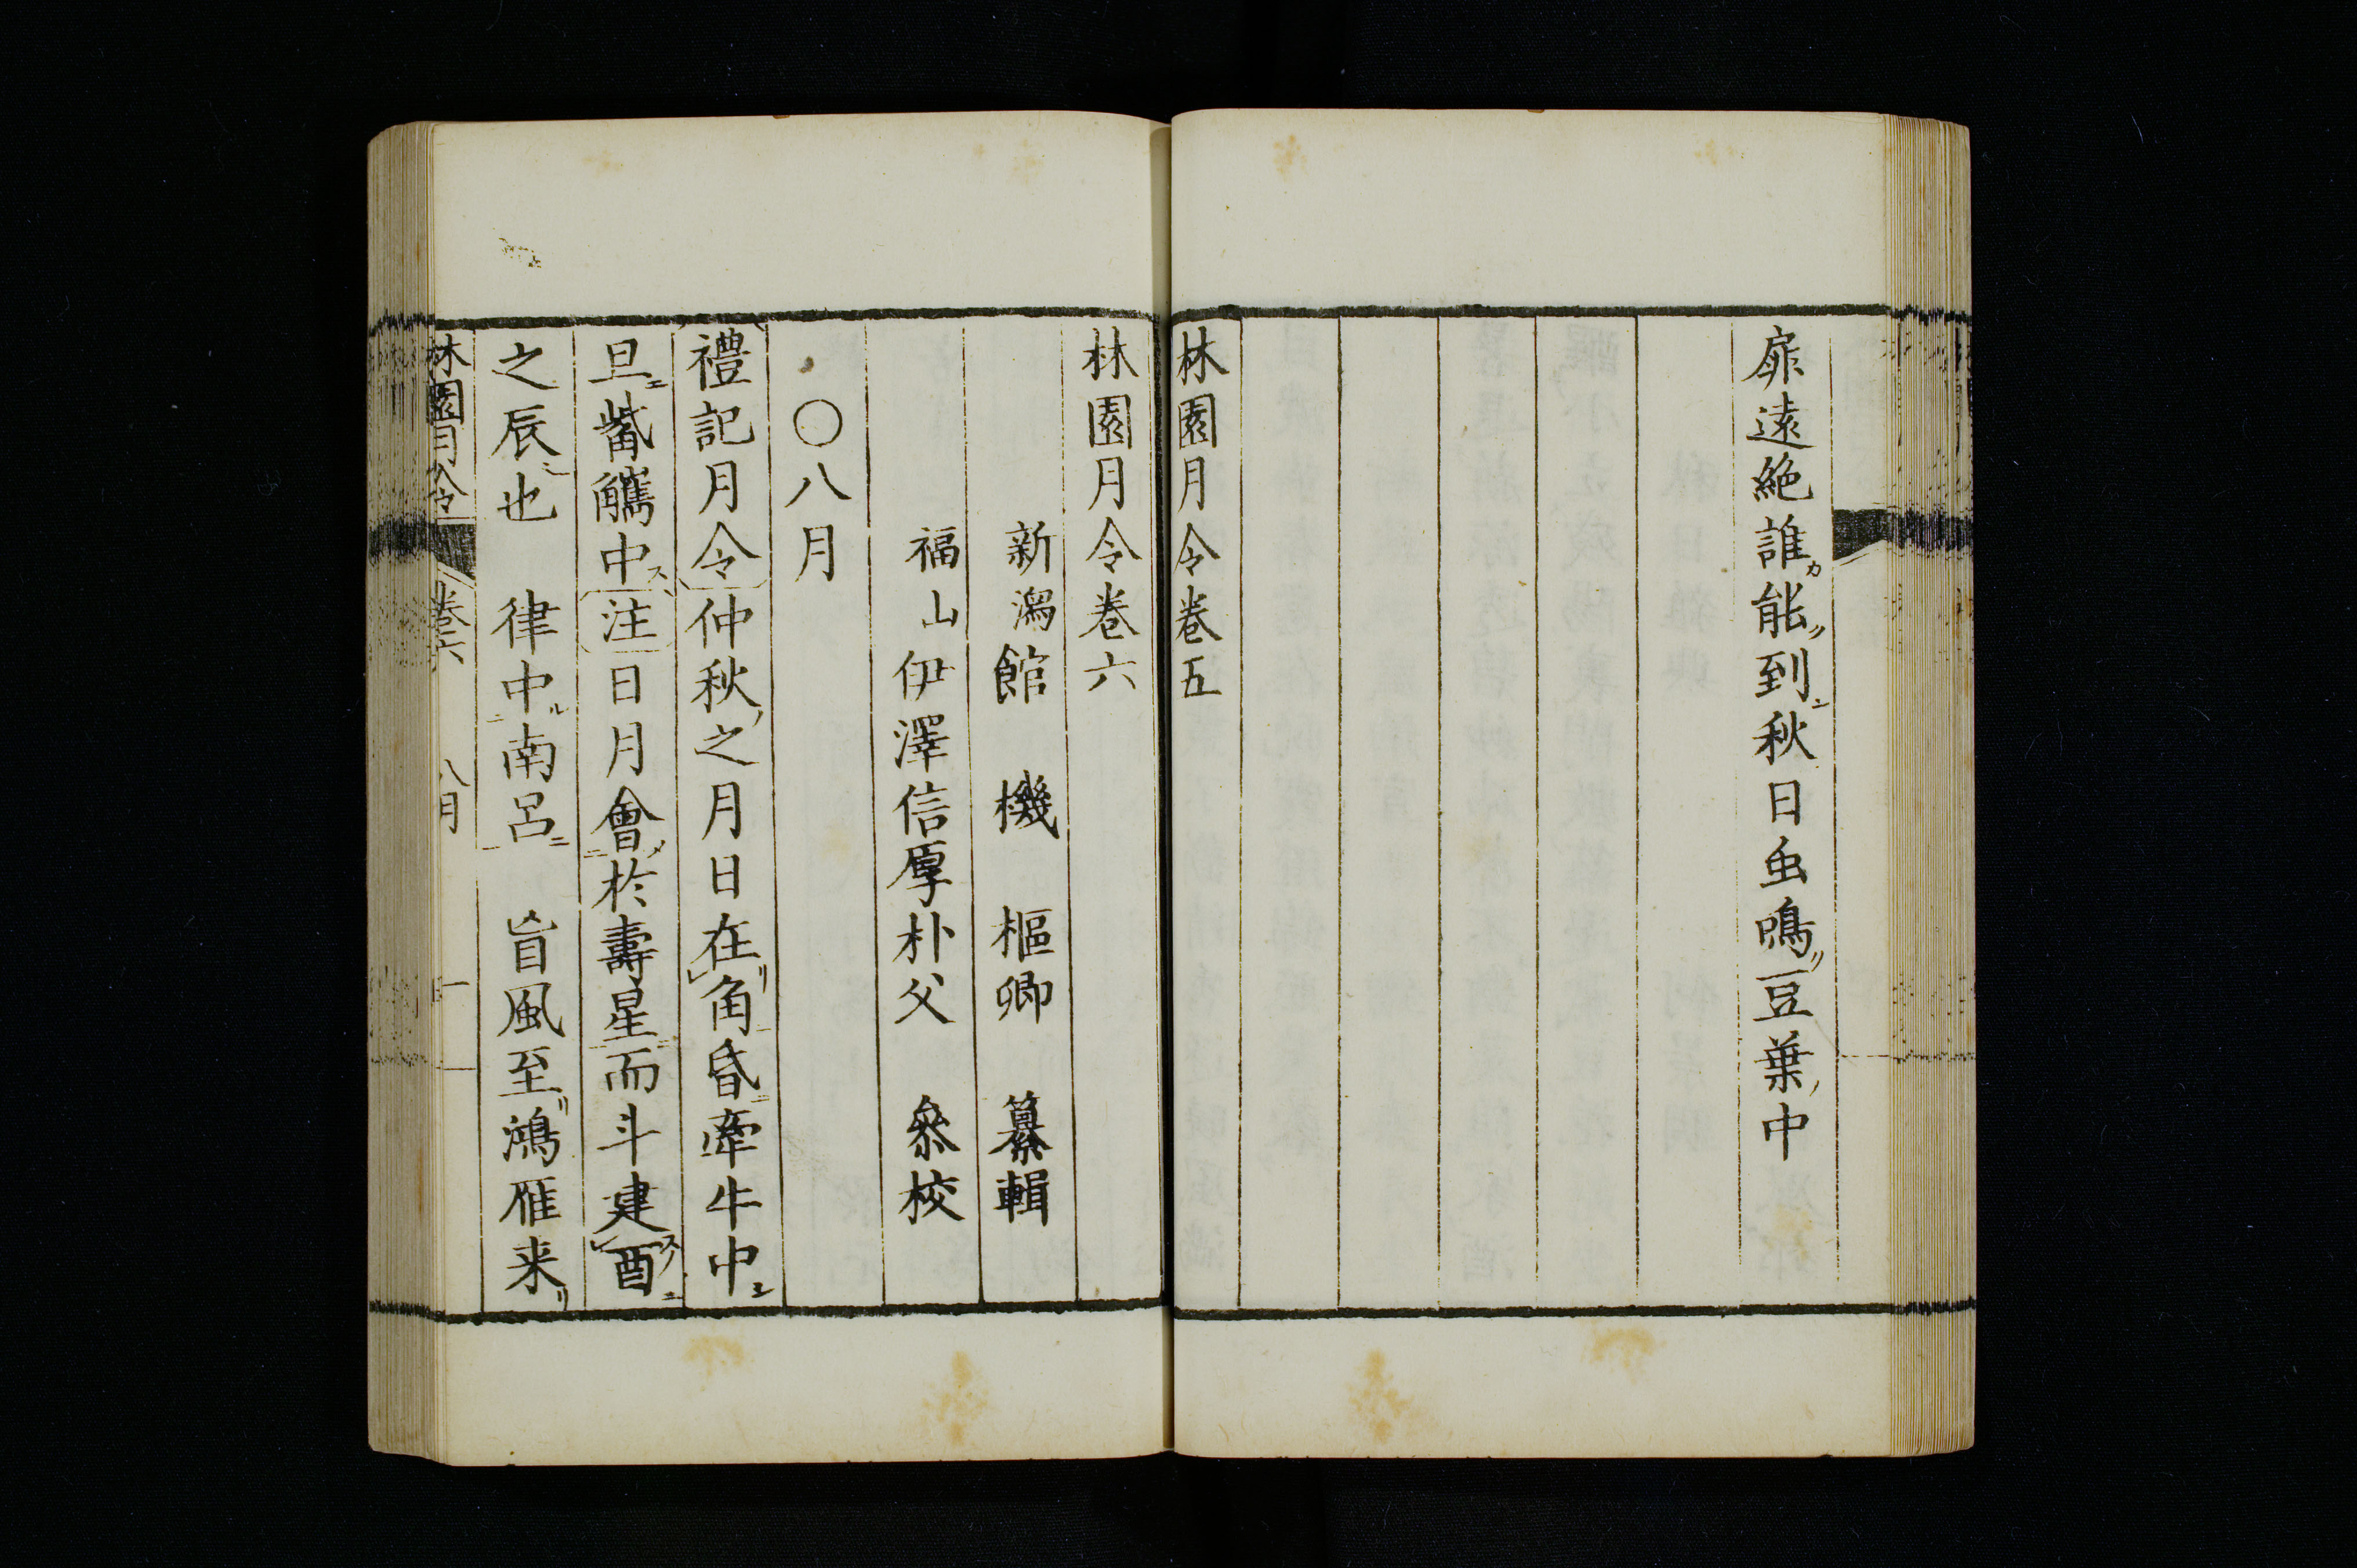 扉遠絶誰能到秋日虫鳴豆葉中
林園月令卷五
林園月令卷六
新瀉館 機 樞卿 纂輯
福山伊澤信厚朴父 叅校
○八月
禮記月令仲秋之月日在角昏牽牛中
旦觜觿中注日月會於壽星而斗建酉
之辰也 律中南呂 盲風至鴻雁来
林園月令 卷六 八月 一